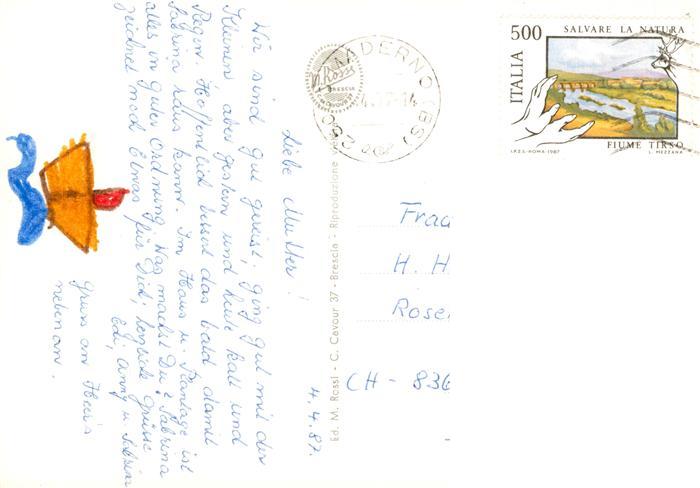 4.4.87.
Liebe Mutter!
Wir sind gut gereist, ging gut mit der
Kleinen aber gestern und heute kalt und
Regen. Hoffentlich bessert das bald damit
Sabrina raus kann. Im Haus u. Plantage ist
alles in guter Ordnung. Was machst Du? Sabrina
zeichnet noch Etwas für Dich, herzliche Grüsse
Edi, Anny u. Sabrina
Gruss an
nebenan.
Ed. M. Rossi - C. Cavour 37 - Brescia - Riproduzione
M. Rossi
BRESCIA
MADERNO (BS)
500
ITALIA
SALVARE LA NATURA
FIUME TIRSO
I.P.Z.S.-ROMA-1987
L. MEZZANA
Frau
H. H
Rose
CH - 836